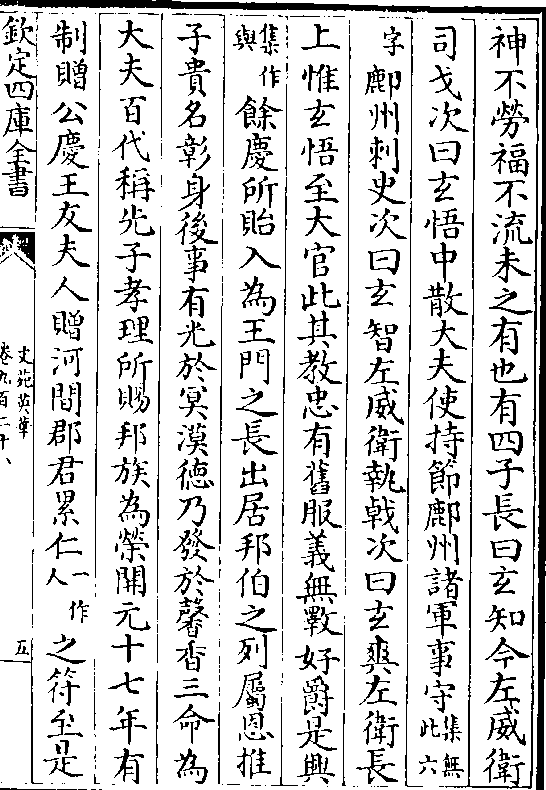 神不勞福不流未之有也有四子長曰玄知今左威衛
司戈次曰玄悟中散大夫使持節鄜州諸軍事守集無此六
字鄜州刺史次曰玄智左威衛執戟次曰玄爽左衛長
上惟玄悟至大官此其教忠有舊服義無斁好爵是興
集作與餘慶所貽入為王門之長出居邦伯之列屬恩推
子貴名彰身後事有光於冥漠德乃發於馨香三命為
大夫百代稱先子孝理所賜邦族為榮開元十七年有
制贈公慶王友夫人贈河間郡君累仁一作人之符至是
欽定四庫全書
文苑英華
卷九百二十八
五